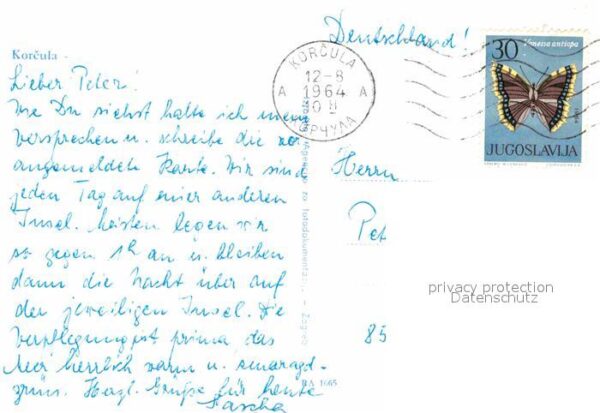 Deutschland!
Korčula
KORČULA
12-8
1964
A A
КОРЧУЛА
30 Vanessa antiopa
1964
JUGOSLAVIJA
Lieber Peter!
Wie Du siehst halte ich mein
Versprechen u. schreibe die
angemeldete Karte. Wir sind
jeden Tag auf einer anderen
Insel. Meisten legen wir
so gegen 1h an u. bleiben
dann die Nacht über auf
der jeweiligen Insel. Die
Verpflegung ist prima das
Meer herrlich warm u. smaragd-
grün. Herzl. Grüße für heute
Sascha
Herrn
Pet
85
za fotodokumentaciju - Zagreb
RA 1665
privacy protection
Datenschutz